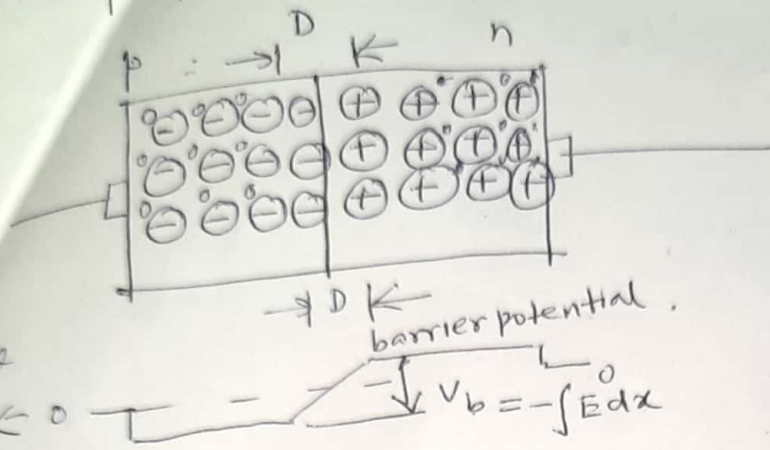 D
p n
D
barrier potential.
0 V_b = -∫E dx 0